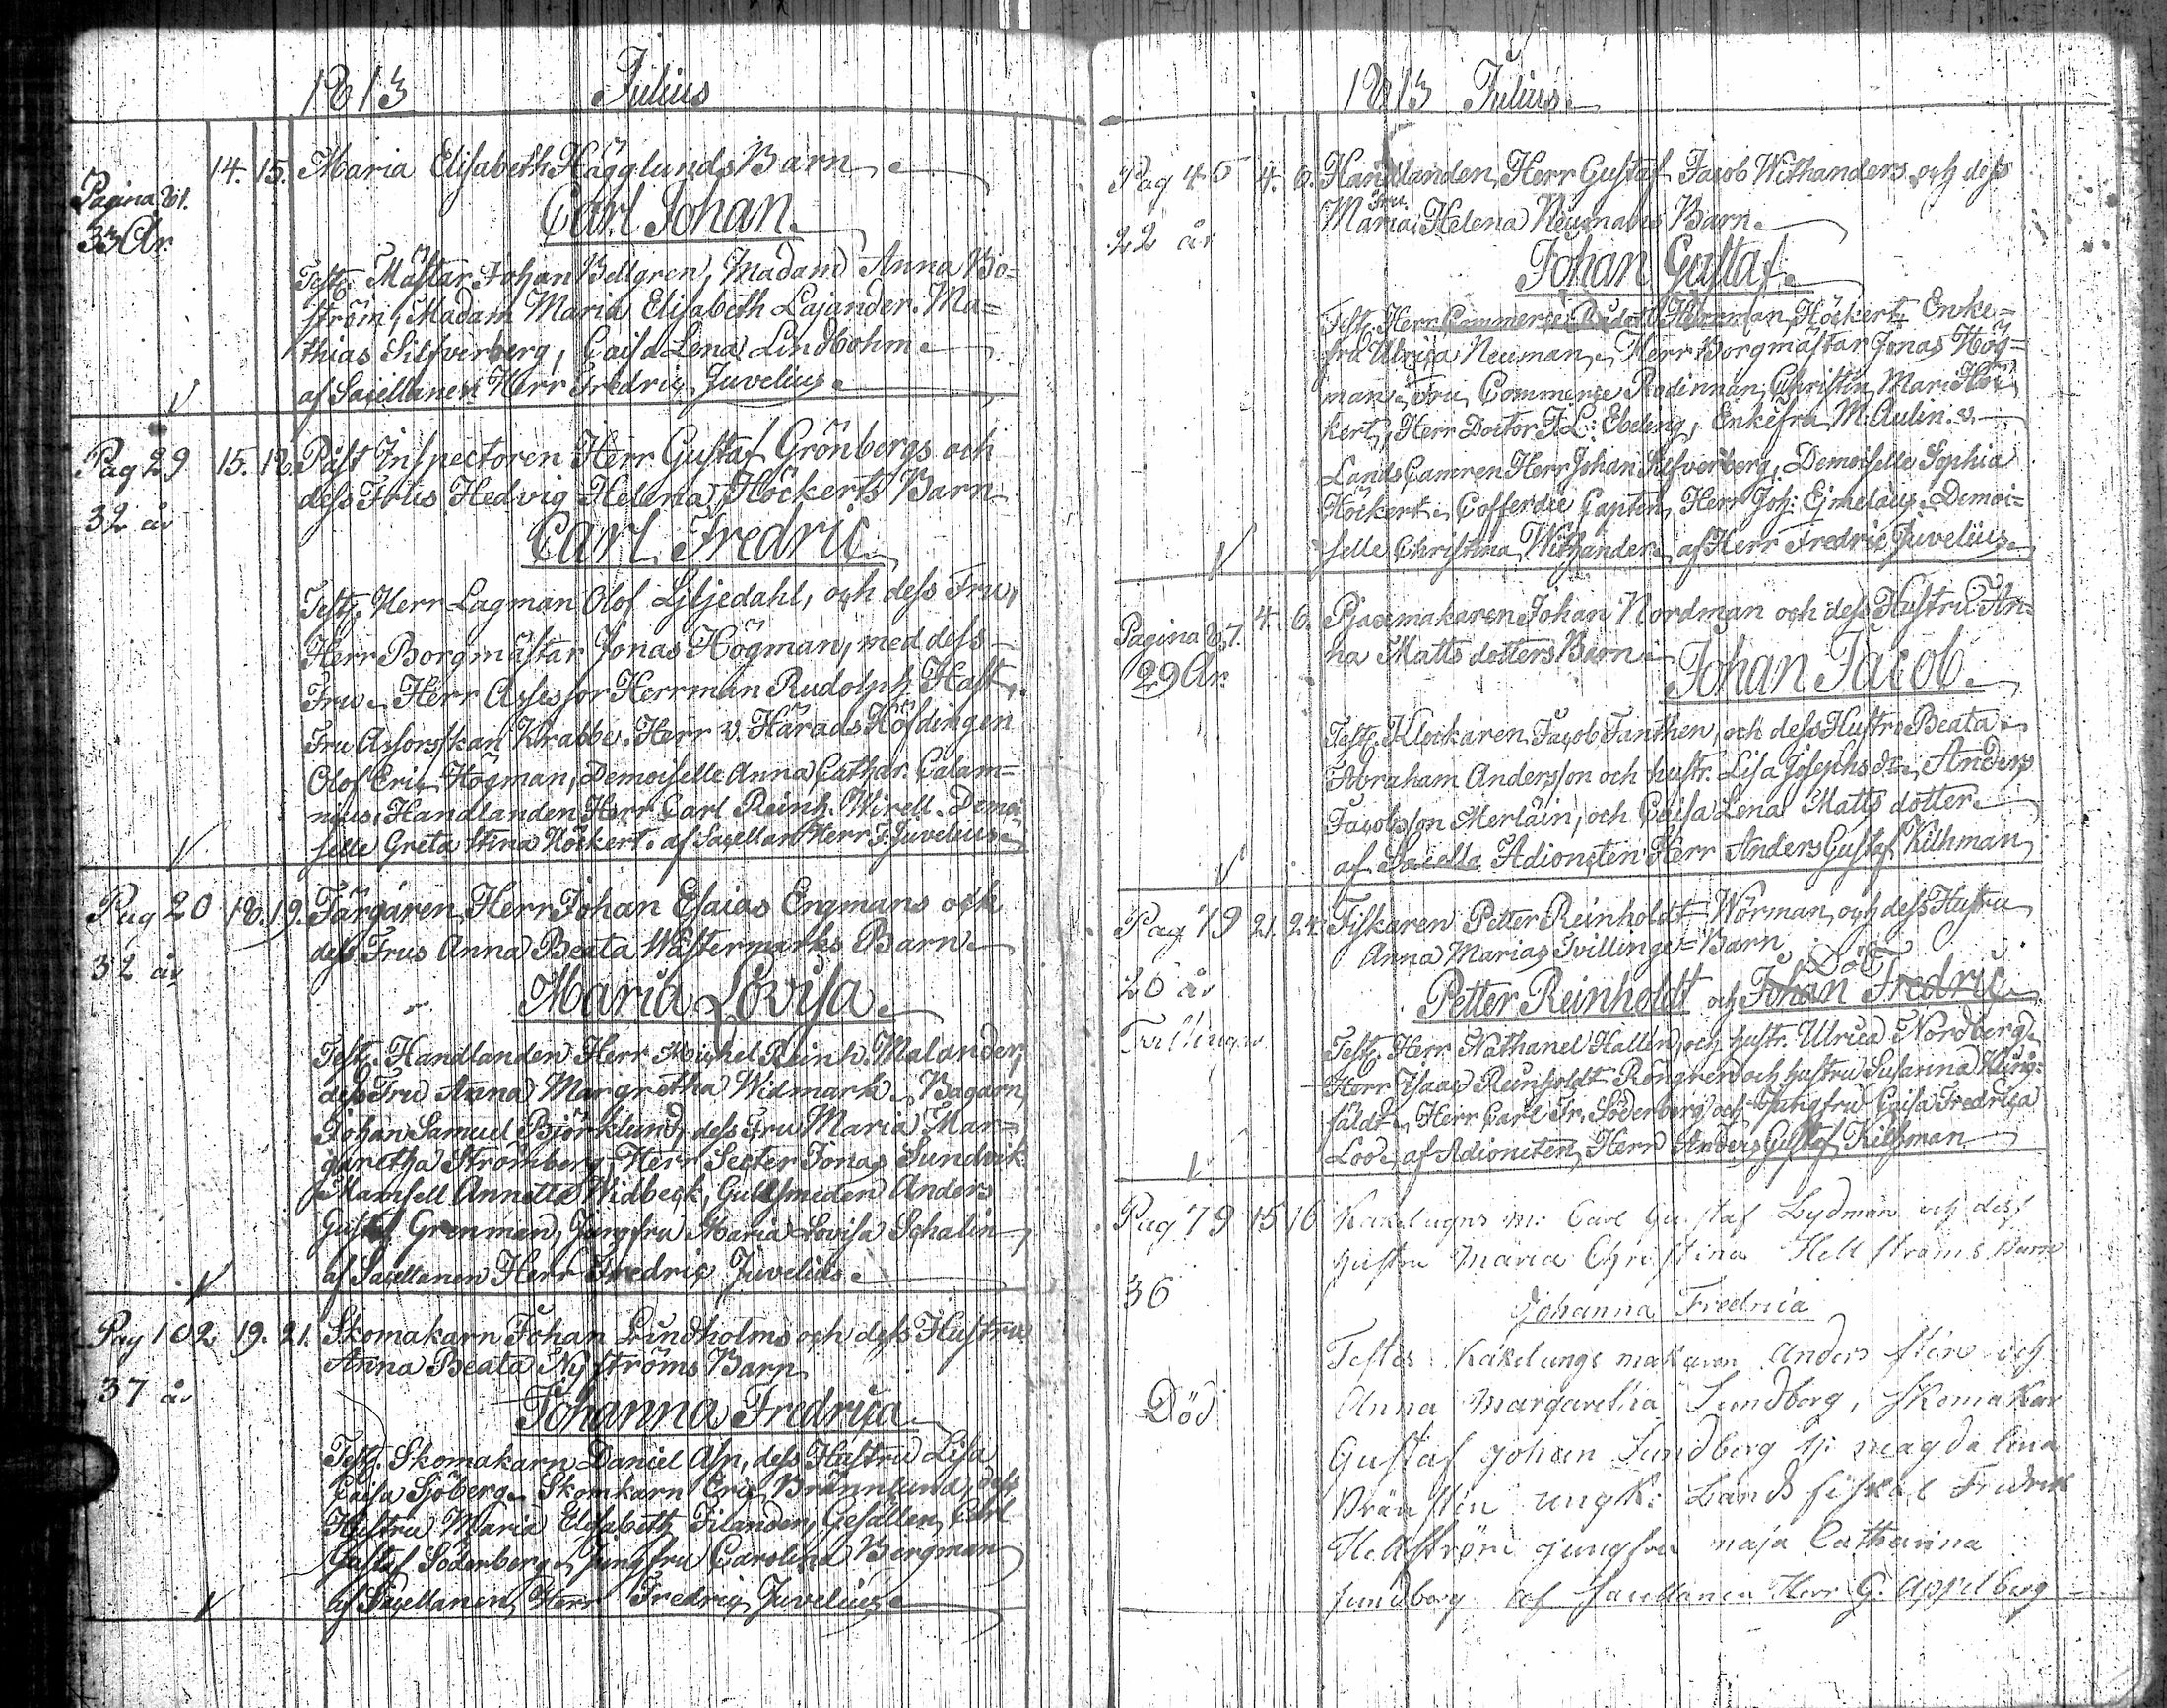 1813 Julius
14. 15. Maria Elisabeth Hägglunds Barn
Pagina 81.
33 År.
Carl Johan.
Test. Mästar Johan Bellgren, Madam Anna Bo=
ström, Madam Maria Elisabeth Lajander. Ma=
thias Silfverberg, Caisa Lena Lindbohm
af Sacellanen Herr Fredric Juvelius
Pag 29 15. 18. Påst Inspectoren Herr Gustaf Grönbergs och
32 år dess Frus Hedvig Helena Höckerts Barn
Carl Fredric
Test. Herr Lagman Olof Liljedahl, och dess Fru,
Herr Borgmästar Jonas Högman, med dess
Fru. Herr Assessor Herrman Rudolph Hast,
Fru Krabbe. Herr v. Härads Höfdingen
Olof Eric Högman, Demoiselle Anna Cathar. Calam=
nius, Handlanden Herr Carl Reinh. Wirell. Demoi=
selle Greta Stina Höckert. af Sacellan Herr F. Juvelius
Pag 20 18. 19. Färgaren Herr Johan Esaias Engmans och
32 år dess Frus Anna Beata Wästermarks Barn
Maria Lovisa
Test. Handlanden Herr Michel Reinh. Malander,
dess Fru Anna Margretha Widmark, Bagarn
Johan Samuel Björklund, dess Fru Maria Mar=
garetha Strömberg, Herr Secter Jonas Sundvik
Mamsell Annette Widbeck, Gullsmeden Anders
Gustaf Grenman, Jungfru Maria Lovisa Schalin
af Sacellanen Herr Fredric Juvelius
Pag 102 19. 21. Skomakarn Johan Lundholms och dess Hustru
Anna Beata Nyströms Barn
37 år
Johanna Fredrica
Test. Skomakarn Daniel Alm, dess Hustru Lisa
Caisa Sjöberg. Skomkarn Eric Brännlund, dess
Hustru Maria Elisabeth Filander, Gesällen Carl
Gustaf Söderberg, Jungfru Carolina Bergman
af Sacellanen, Herr Fredric Juvelius
1813 Julius
Pag 45 4. 6. Handlanden Herr Gustaf Jacob Withanders och dess
Fru
22 år Maria Helena Neumans Barn
Johan Gustaf
Test. Herr Commerce Herrman Höckert Enke=
fru Ulrica Neuman, Herr Borgmästar Jonas Hög=
man, Fru Commerce Rådinnan Christin Mari Höc
kert, Herr Doctor F. L. Ebeling, Enkefru M. Aulin.
Lands Camren Herr Johan Silfverberg, Demoiselle Sophia
Höckert. Cofferdie Capten, Herr Joh: Demoi=
selle Christina Withander. af Herr Fredric Juvelius
Pagina 87. 4. 6. Johan Nordman och dess Hustru An=
29 År. na Matts dotters Barn
Johan Jacob
Test. Klockaren Jacob Fanthen, och dess Hustru Beata
Abraham Andersson och hustr. Lisa Josephs dr. Anders
Jacobsson Merläin, och Caisa Lena Matts dotter
af Adioncten Herr Anders Gustaf Kihlman
Pag 79 21. 24. Fiskaren Petter Reinholdt Wörman, och dess Hustru
Anna Marias Tvillinge=Barn
20 år Död
Petter Reinholdt och Johan Fredric
Tvillingar
Test. Herr Nathanel Hallén, och hustr. Ulrica Nordberg,
Herr Isaac Reinholdt Röngren och hustru Susanna Kling=
fäldt. Herr Carl Fr. Söderberg och Jungfru Caisa Fredrica
Loo. af Adioncten Herr Anders Gustaf Kihlman
Pag 79 15 16 Kakelugns m: Carl Gustaf Lydman och dess
hustru Maria Christina Hellströms Barn
36
Johanna Fredrica
Testes Kakelungs makaren Anders Sten och
Död Anna Margaretha Sundberg, Skomakar
Gustaf Johan Sundberg h: Magdalena
ungk: Lands fiskal Fredrik
Hellström jungfru Maja Catharina
Sundberg af Sacellanen Herr G. Appelberg